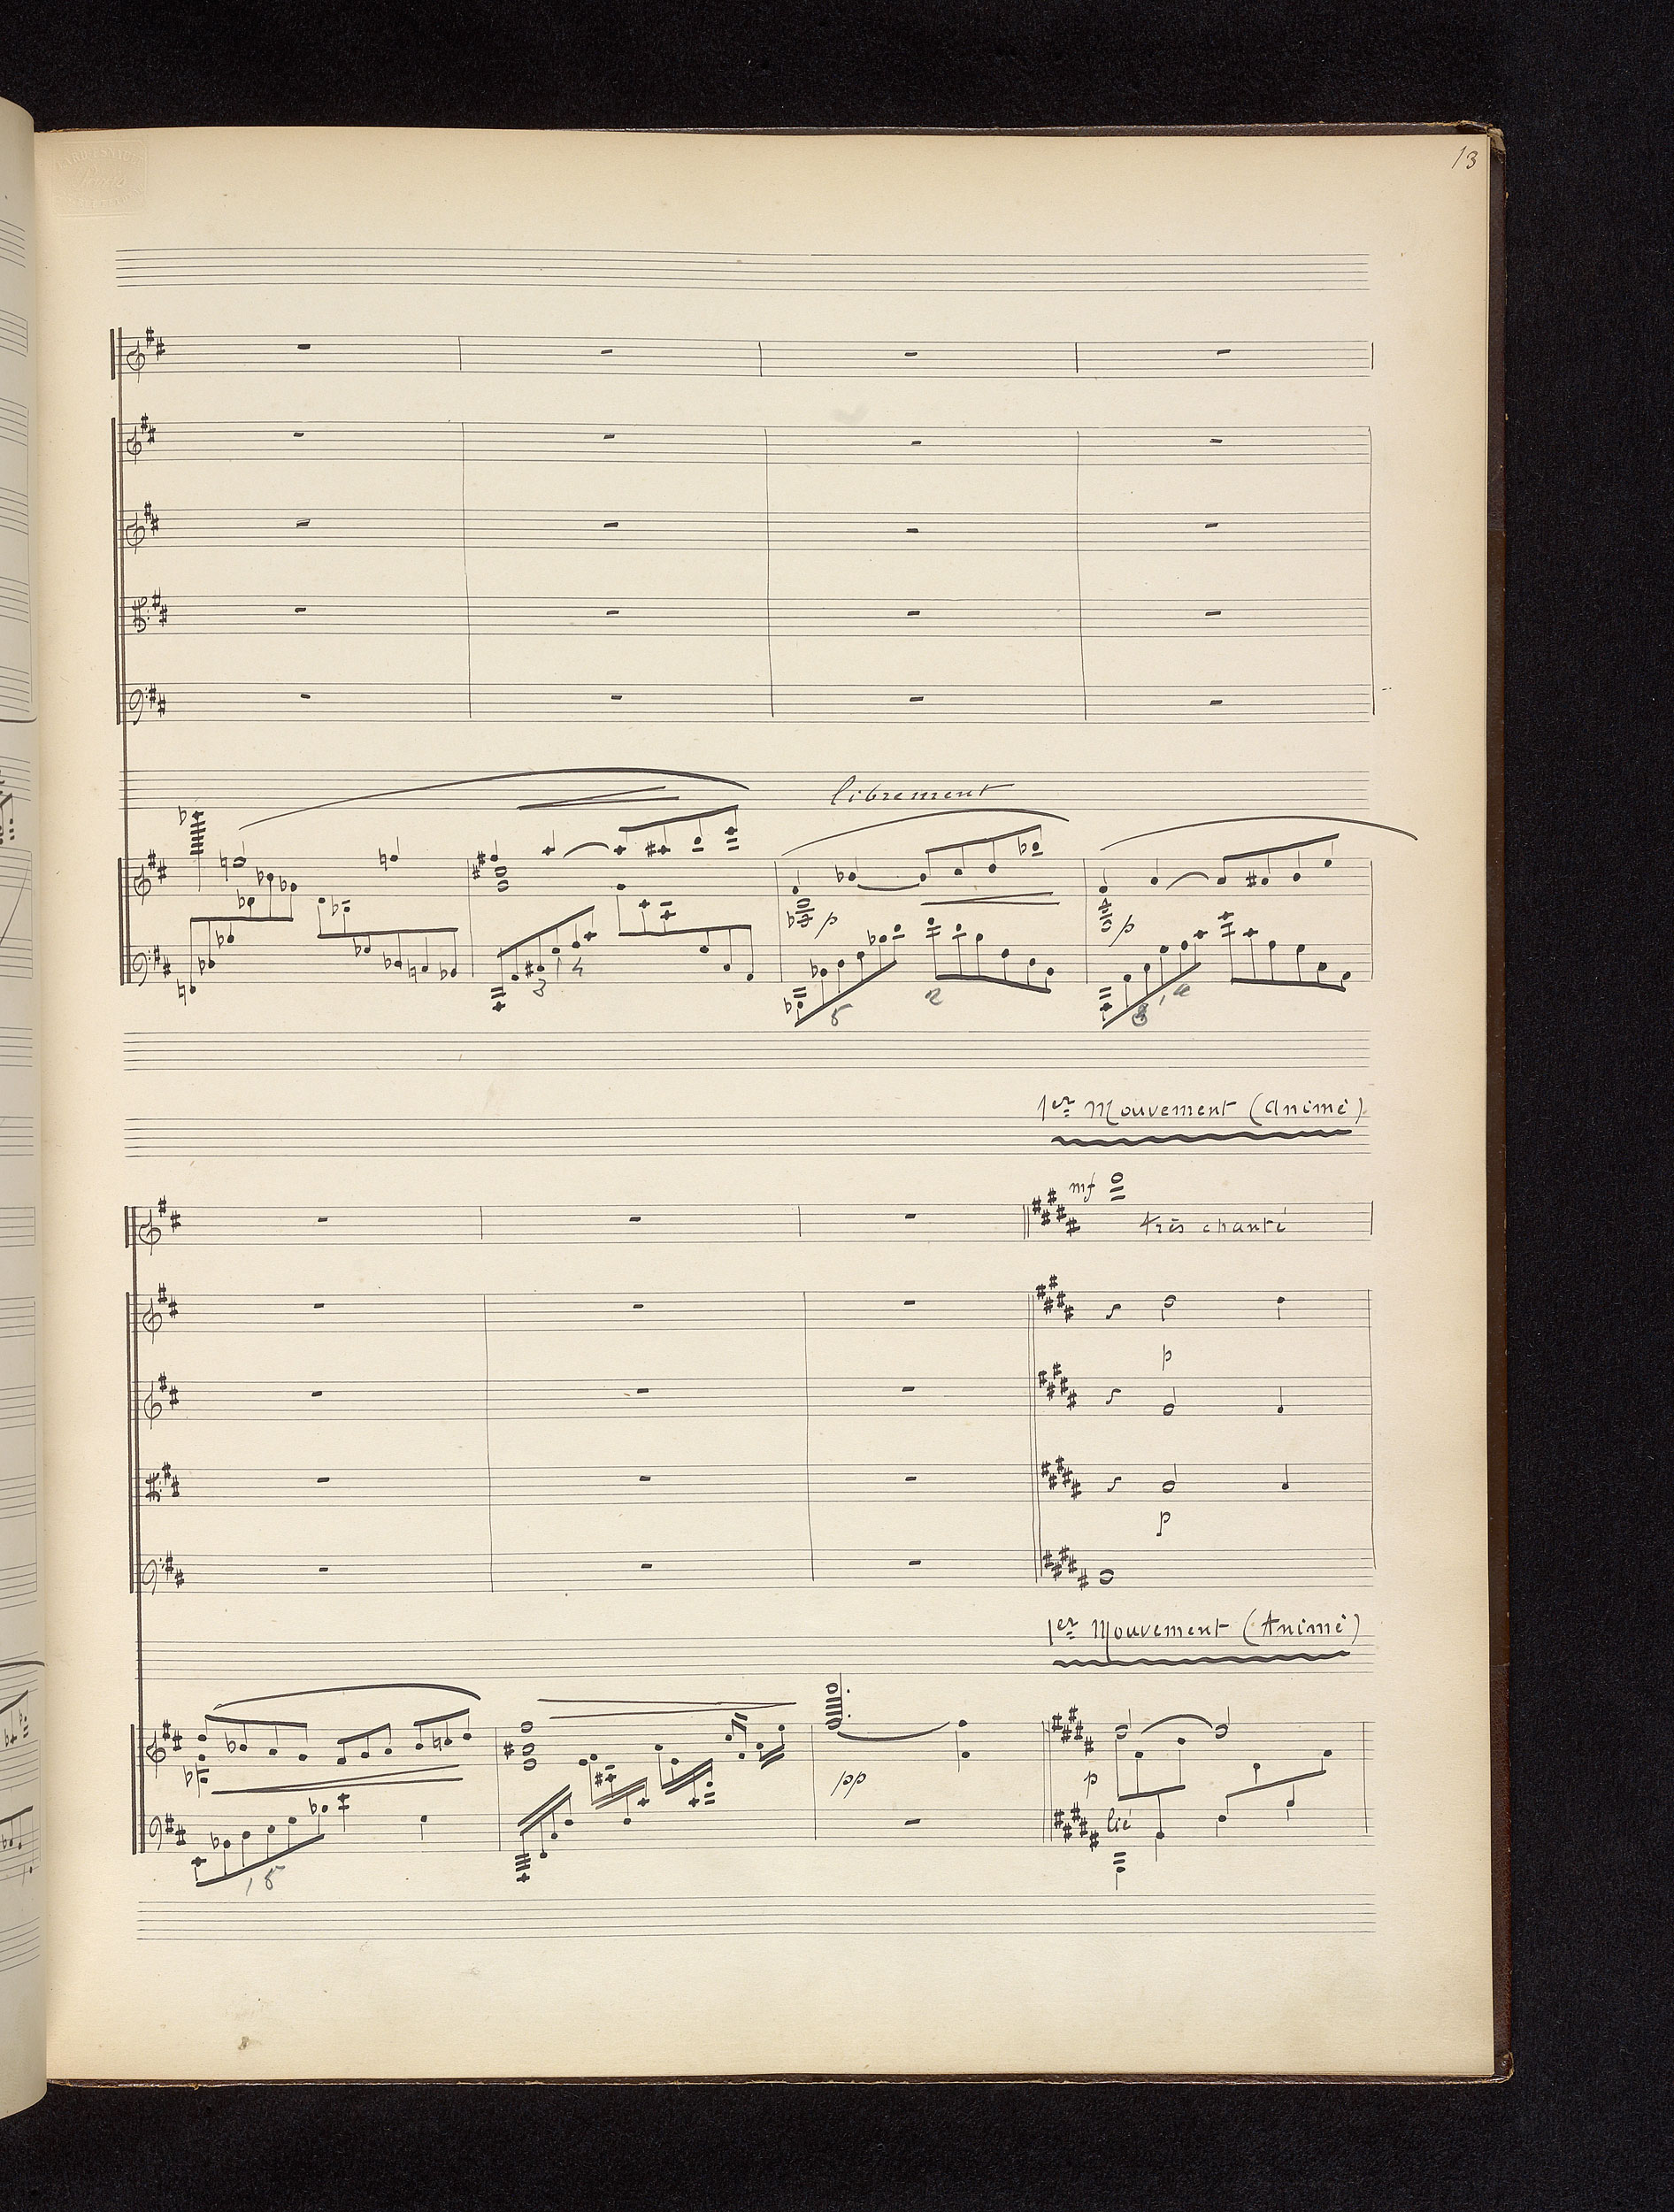 13
librement
p
p
3 1 4
5
2
3 1 4
1er Mouvement (Animé)
mf
très chanté
p
p
1er Mouvement (Animé)
pp
p
lié
1 5